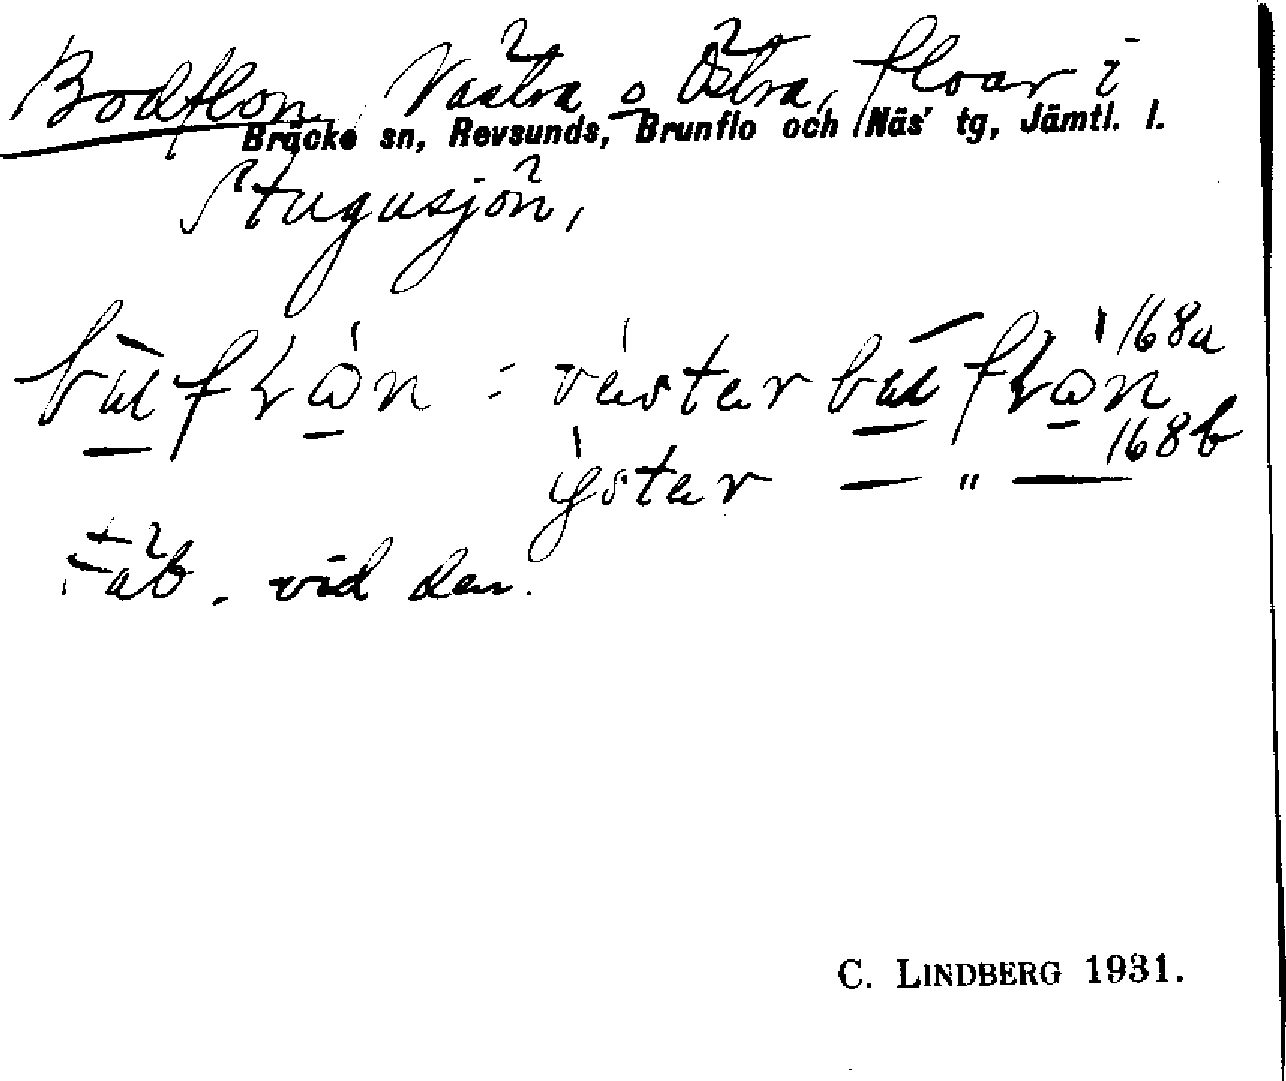 Bodflon, Västra o Östra, floar i
Bräcke sn, Revsunds, Brunflo och Näs' tg, Jämtl. l.
Stugusjön,
västar 168a
ystar — " — 168b
Fäb. vid den.
C. LINDBERG 1931.